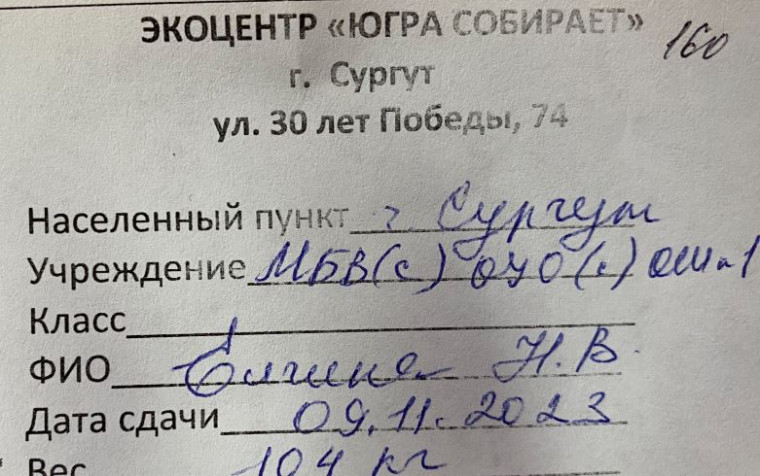 ЭКОЦЕНТР «ЮГРА СОБИРАЕТ»
160
г. Сургут
ул. 30 лет Победы, 74
Населенный пункт г. Сургут
Учреждение МБВ(с)ОУО(с)ОШ №1
Класс
ФИО Н.В.
Дата сдачи 09.11.2023
Вес 104 кг